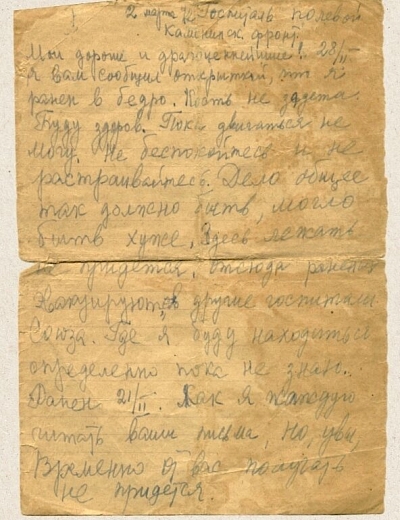 2 марта 42 Госпиталь полевой
Каменск. фронт.
Мои дорогие и драгоценнейшие! 28/II
я Вам сообщил открыткой, что я
ранен в бедро. Кость не задета.
Буду здоров. Пока двигаться не
могу. Не беспокойтесь и не
растраивайтесь. Дело общее
так должно быть, могло
быть хуже, Здесь лежать
не придется, отсюда раненых
Эвакуируют в другие госпитали
Союза. Где я буду находиться
определенно пока не знаю.
Ранен 21/II. Как я жажду
читать ваши письма, но, увы,
Временно от вас получать
не придется.